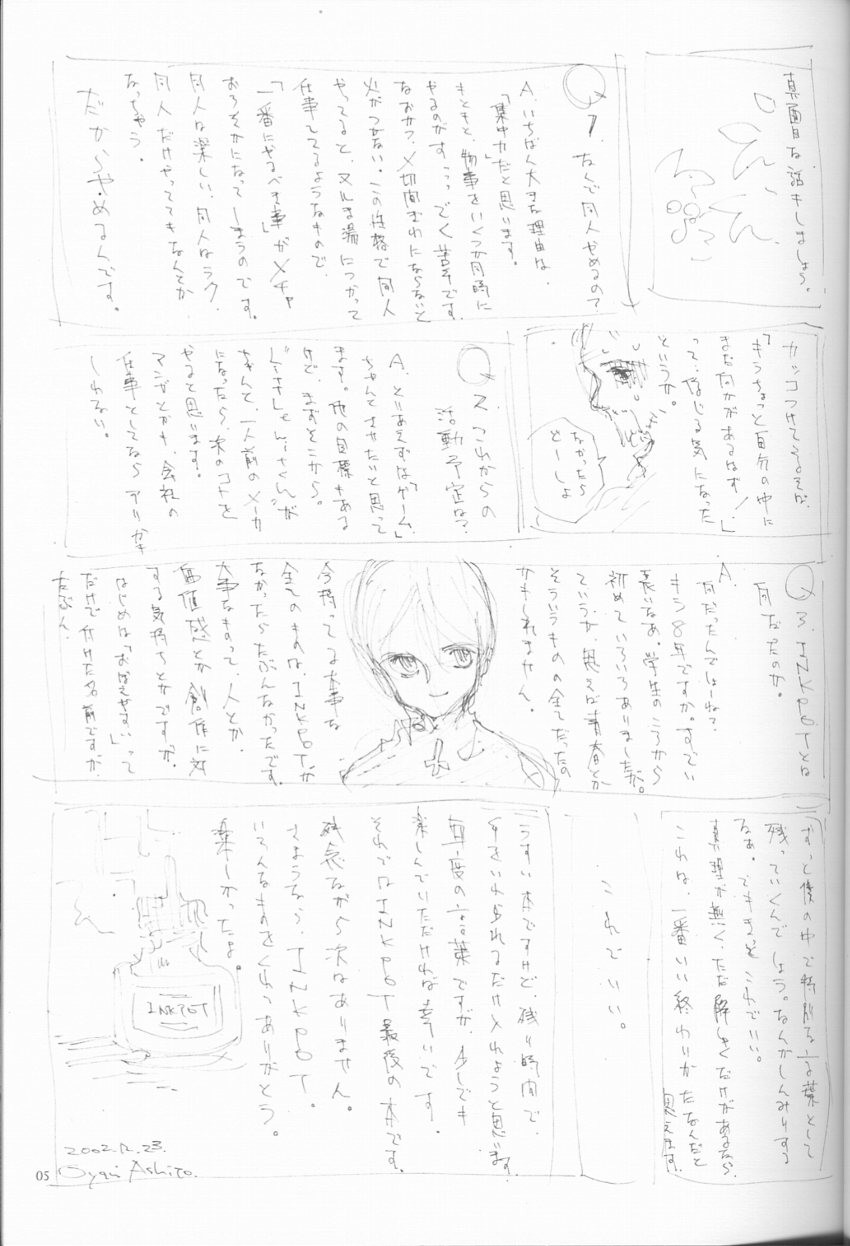 真面目な話をしましょう。
Q1. なんで同人やめるの?
A. いちばん大きな理由は、
「集中力」だと思います。
もともと、物事をいくつか同時に
やるのがすっっごく苦手です。
なおかつ、〆切間ぎわにならないと
火がつかない。この性格で同人
やってると、ヌルま湯につかって
仕事してるようなもので、
「一番にやるべき事」がメチャ
おろそかになってしまうのです。
同人は楽しい、同人はラク、
同人だけやっててもなんとか
なっちゃう。
だからやめるんです。
カッコつけてうるそが、
「もうちょっと自分の中に
まだ何かがあるはず!」
って、信じる気になった
というか。
なかったら
どーしよ
Q2. これからの
活動予定は?
A. とりあえずは「ゲーム」
ちゃんとさせたいと思って
ます。他の目標もある
けど、まずそこから。
ちゃんと、一人前のメーカ
になったら、次のコトを
やると思います。
マンガとかも、会社の
仕事としてならアリかも
しれない。
Q3. INKPOTとは
何だったのか。
A.
何だったんでしょーね?
もう8年ですか。すごい
長いなあ。学生のころから
初めていろいろありましたが。
ていうか、思えば青春とか
そういうものの全てだったの
かもしれません。
今持ってる大事な
全てのものは、INKPOTが
なかったらたぶんなかったです。
大事なものって、人とか、
価値感とか創作に対
する気持ちとかですが。
はじめは「おぼえやすい」って
だけで付けた名前ですが、
たぶん、
ずっと僕の中で特別な言葉として
残っていくんでしょう。なんかしんみりする
なぁ。でもきっとこれでいい。
真理が無く、ただ解しゃくだけがあるなら、
これは、一番いい終わりかたなんだと
思えます。
これでいい。
うすい本ですけど、残り時間で、
手をいれられるだけ入れようと思います。
毎度の言葉ですが、少しでも
楽しんでいただければ幸いです。
それではINKPOT最後の本です。
残念ながら次はありません。
さようなら、INKPOT。
いろんなものをくれてありがとう。
楽しかったよ。
INKPOT
2002.12.23.
Oyari Ashito.
05